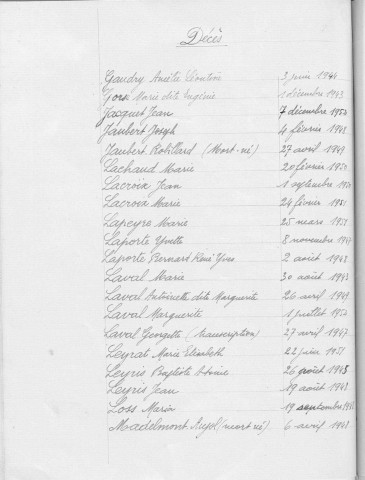 Décès
Gaudry Anette Léontine 3 juin 1944
Gors Marie dite Eugénie 1 décembre 1943
Jacquet Jean 7 décembre 1950
Jaubert Joseph 4 février 1948
Jaubert Robillard (Mort-né) 27 avril 1949
Lachaud Marie 20 février 1950
Lacroix Jean 1 septembre
Lacroix Marie 24 février 1951
Lapeyre Marie 25 mars 1951
Laporte Yvette 8 novembre 1947
Laporte Bernard René Yves 2 août 1948
Laval Marie 30 août 1943
Laval Antoinette dite Marguerite 26 avril 1949
Laval Marguerite 1 juillet 1950
Laval Georgette (transcription) 27 avril 1947
Leyrat Marie Elisabeth 22 juin 1951
Leyris Baptiste 26 août 1945
Leyris Jean 19 août 1948
Loss Maria 19 septembre
Madelmont (mort né) 6 avril 1948